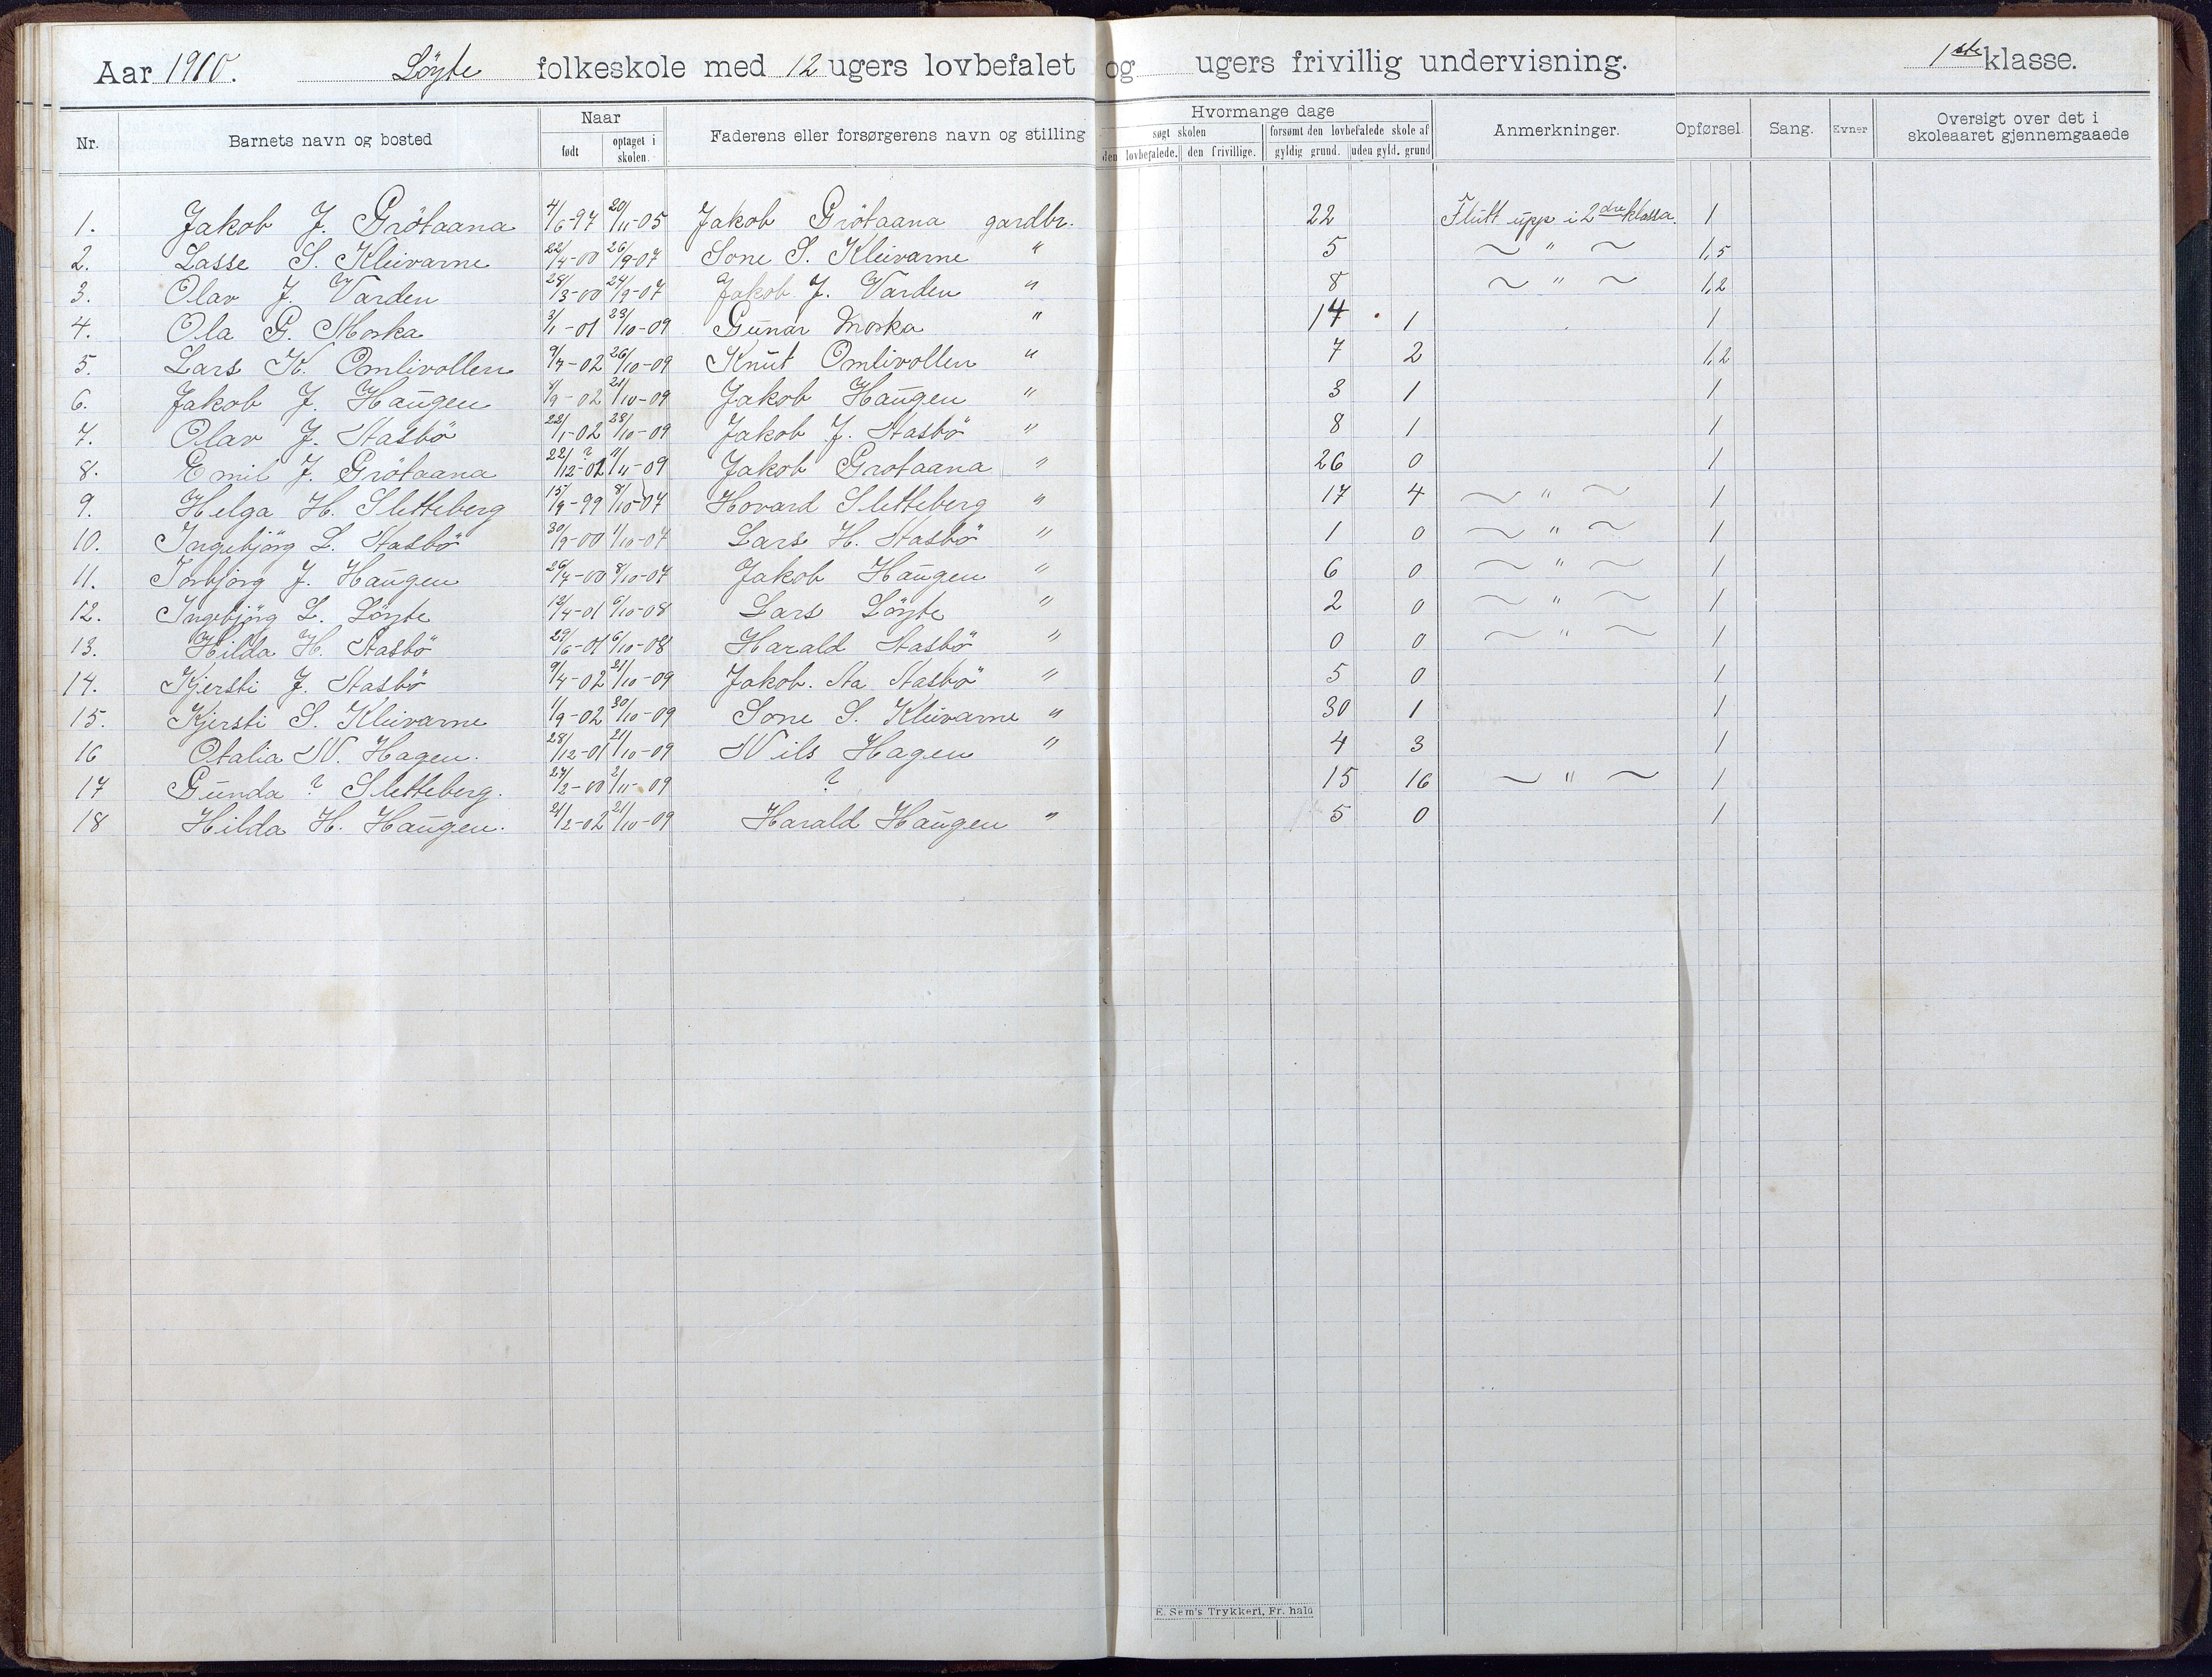 Aar 1910. Löyte folkeskole med 12 ugers lovbefalet og ugers frivillig undervisning. 1ste klasse.
Nr. Barnets navn og bosted Naar født optaget i skolen. Faderens eller forsørgerens navn og stilling Hvormange dage søgt skolen den lovbefalede. den frivillige. forsømt den lovbefalede skole af gyldig grund. uden gyld. grund Anmerkninger. Opførsel. Sang. Evner Oversigt over det i skoleaaret gjennemgaaede
1. Jakob J. Grötaana 4/6-97 20/11-05 Jakob Grötaana gardbr. 22 Flutt upp i 2dre klassa. 1
2. Lasse S. Kleivarne 22/4-00 26/9-07 Sone S. Kleivarne " 5 ~ " ~ 1,5
3. Olav J. Varden 28/3-00 24/9-07 Jakob J. Varden " 8 ~ " ~ 1,2
4. Ola G. Moska 3/1-01 23/10-09 Gunar Moska " 14 1 1
5. Lars K. Omlivollen 9/7-02 26/10-09 Knut Omlivollen " 7 2 1,2
6. Jakob J. Haugen 8/9-02 21/10-09 Jakob Haugen " 3 1 1
7. Olav J. Stasbö 22/1-02 23/10-09 Jakob J. Stasbö " 8 1 1
8. Emil J. Grötaana 22/12-02 ? 11/11-09 Jakob Grotaana " 26 0 1
9. Helga H. Sletteberg 15/9-99 8/10-07 Hovard Sletteberg " 17 4 ~ " ~ 1
10. Ingebjörg L. Stasbö 30/9-00 1/10-07 Lars H. Stasbö " 1 0 ~ " ~ 1
11. Torbjorg J. Haugen 26/4-00 8/10-07 Jakob Haugen " 6 0 ~ " ~ 1
12. Ingebjörg L. Löyte 12/4-01 6/10-08 Lars Löyte " 2 0 ~ " ~ 1
13. Hilda H. Stasbö 29/6-01 6/10-08 Harald Stasbö " 0 0 ~ " ~ 1
14. Kjersti J. Stasbö 9/4-02 21/10-09 Jakob. Sta Stasbö " 5 0 1
15. Kjersti S. Kleivarne 11/9-02 30/10-09 Sone S. Kleivarne " 30 1 1
16 Otalia N. Hagen. 28/12-01 21/10-09 Nils Hagen " 4 3 1
17 Gunda ? Sletteberg. 27/2-00 2/11-09 ? 15 16 ~ " ~ 1
18 Hilda H. Haugen. 21/2-02 21/10-09 Harald Haugen " 5 0 1
E. Sem's Trykkeri, Fr. hald